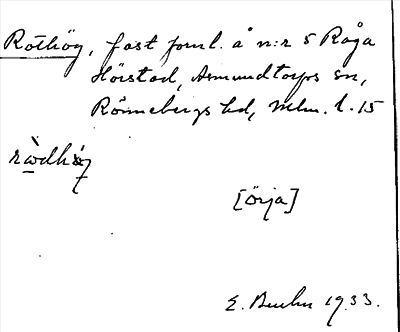 Rothög, fast fornl. å n:r 5 Råga
Hörstad, Asmundtorps sn,
Rönnebergs hd, Mlm. l. 15
[Örja]
E. Buhn 1933.